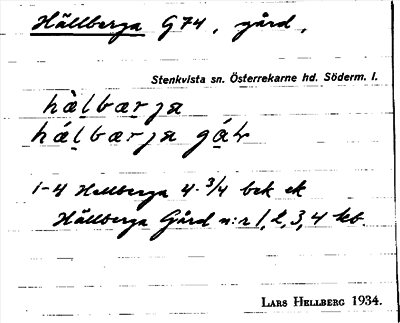 Hällberga G 74, gård,
Stenkvista sn. Österrekarne hd. Söderm. l.
hàlbærja
hálbærja gåḷ
1-4 Hellberga 4 3/4 bek ek
Hällberga Gård n:r 1, 2, 3, 4 kb.
LARS HELLBERG 1934.